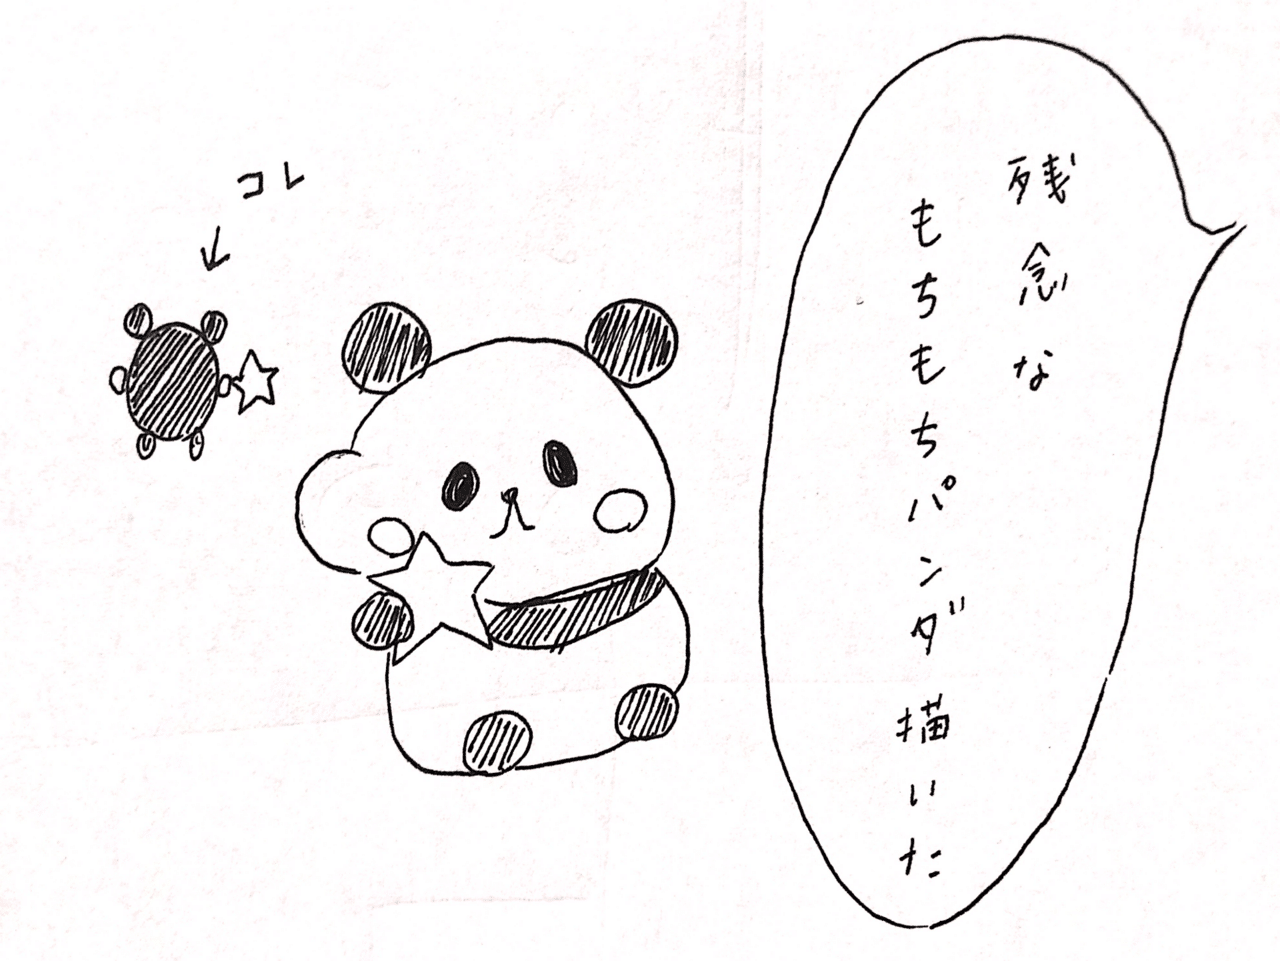 残念な
もちもちパンダ描いた
コレ